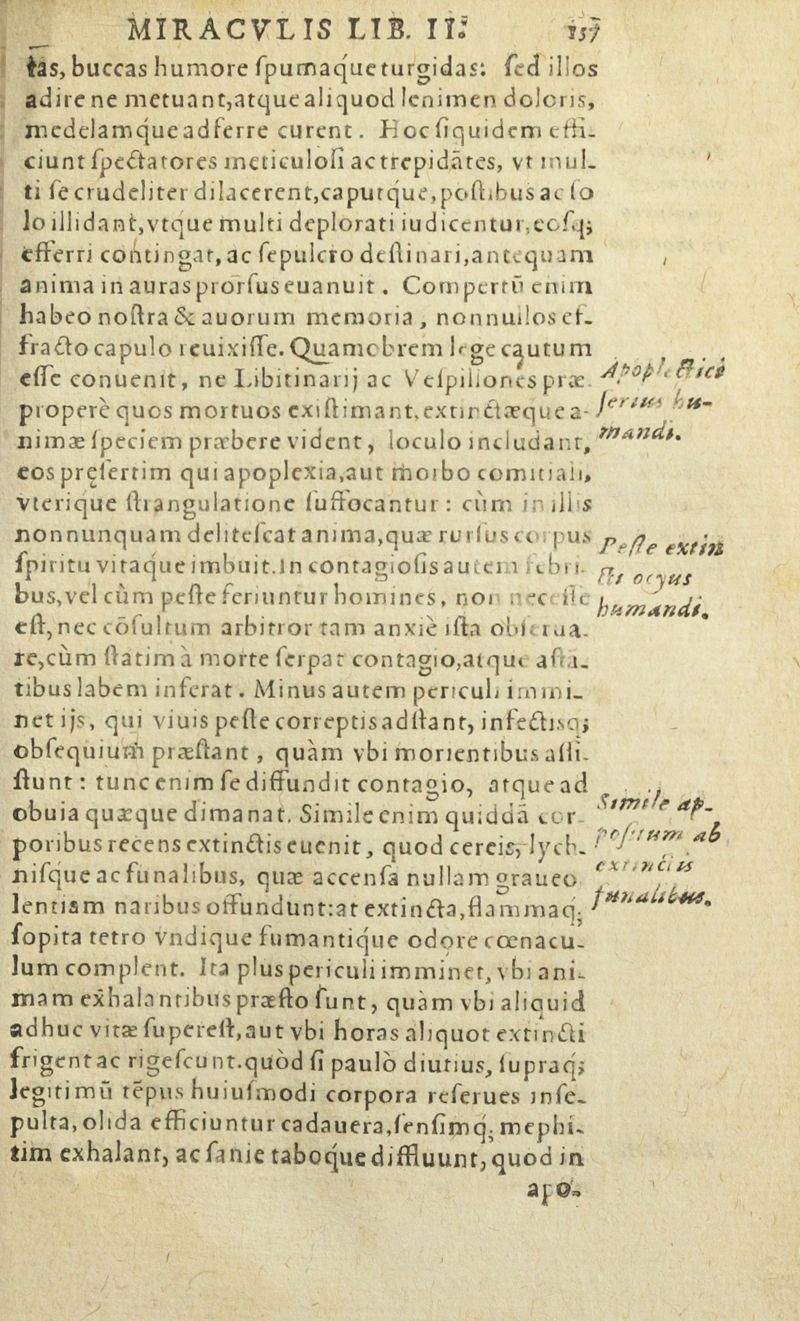 MIRACVLIS LIB. II. 157
tas, buccas humore ſpumaque turgidas: ſed illos
adire ne metuant, atque aliquod lenimen doloris,
medelamque adferre curent. Hoc ſiquidem effi-
ciunt ſpectatores meticuloſi ac trepidātes, vt mul-
ti ſe crudeliter dilacerent, caputque, poſtibus ac ſo
lo illidant, vtque multi deplorati iudicentur, eoſq;
efferri contingat, ac ſepulcro deſtinari, antequam
anima in auras prorſus euanuit. Compertū enim
habeo noſtra & auorum memoria, nonnullos ef-
fracto capulo reuixiſſe. Quamobrem lege cautum
eſſe conuenit, ne Libitinarij ac Veſpillones præ
properè quos mortuos exiſtimant, extinctæque a-
nimæ ſpeciem præbere vident, loculo includant,
eos pręſertim qui apoplexia, aut morbo comitiali,
vterique ſtrangulatione ſuffocantur: cùm in illis
nonnunquam deliteſcat anima, quæ rurſus corpus
ſpiritu vitaque imbuit. In contagioſis autem febri-
bus, vel cùm peſte feriuntur homines, non neceſſe
eſt, nec cōſultum arbitror tam anxiè iſta obſerua-
re, cùm ſtatim à morte ſerpat contagio, atque aſta-
tibus labem inferat. Minus autem periculi immi-
net ijs, qui viuis peſte correptis adſtant, infectisq;
obſequium præſtant, quàm vbi morientibus aſſi-
ſtunt: tunc enim ſe diffundit contagio, atque ad
obuia quæque dimanat. Simile enim quiddā cor-
poribus recens extinctis euenit, quod cereis, lych-
niſque ac funalibus, quæ accenſa nullam graueo
lentiam naribus offundunt: at extincta, flammaq;
ſopita tetro vndique fumantique odore cœnacu-
lum complent. Ita plus periculi imminet, vbi ani-
mam exhalantibus præſto ſunt, quàm vbi aliquid
adhuc vitæ ſupereſt, aut vbi horas aliquot extincti
frigent ac rigeſcunt. quòd ſi paulò diutius, ſupraq;
legitimū tēpus huiuſmodi corpora reſerues inſe-
pulta, olida efficiuntur cadauera, ſenſimq; mephi-
tim exhalant, ac ſanie taboque diffluunt, quod in
apo-
Apoplectici
ſerius hu-
mandi.
Peſte extin
cti ocyus
humandi.
Simile ap-
poſitum ab
extinctis
funalibus.